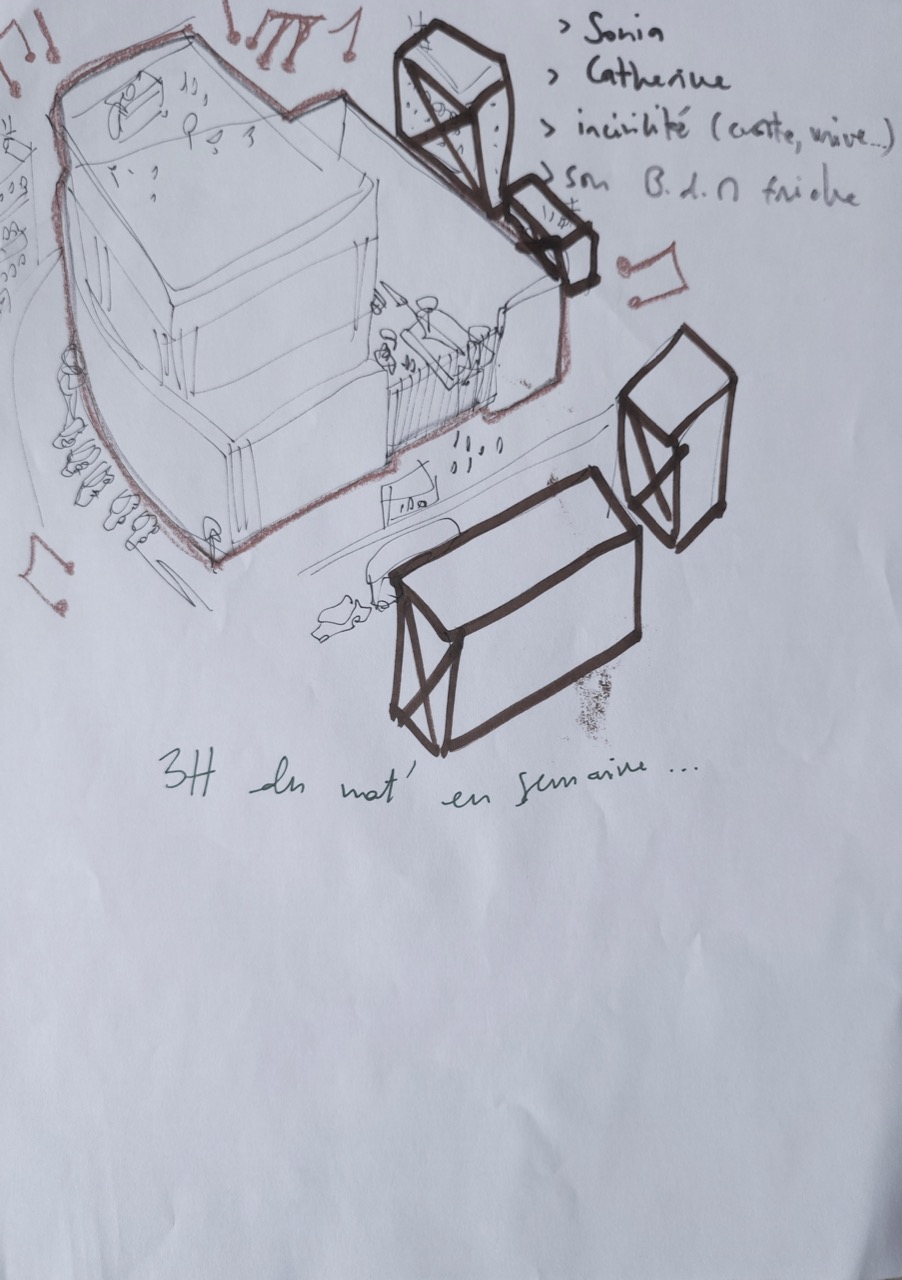 > Sonia
> Catherine
> incivilité (crotte, urine...)
> son B.d.N friche
3H du mat' en semaine ...